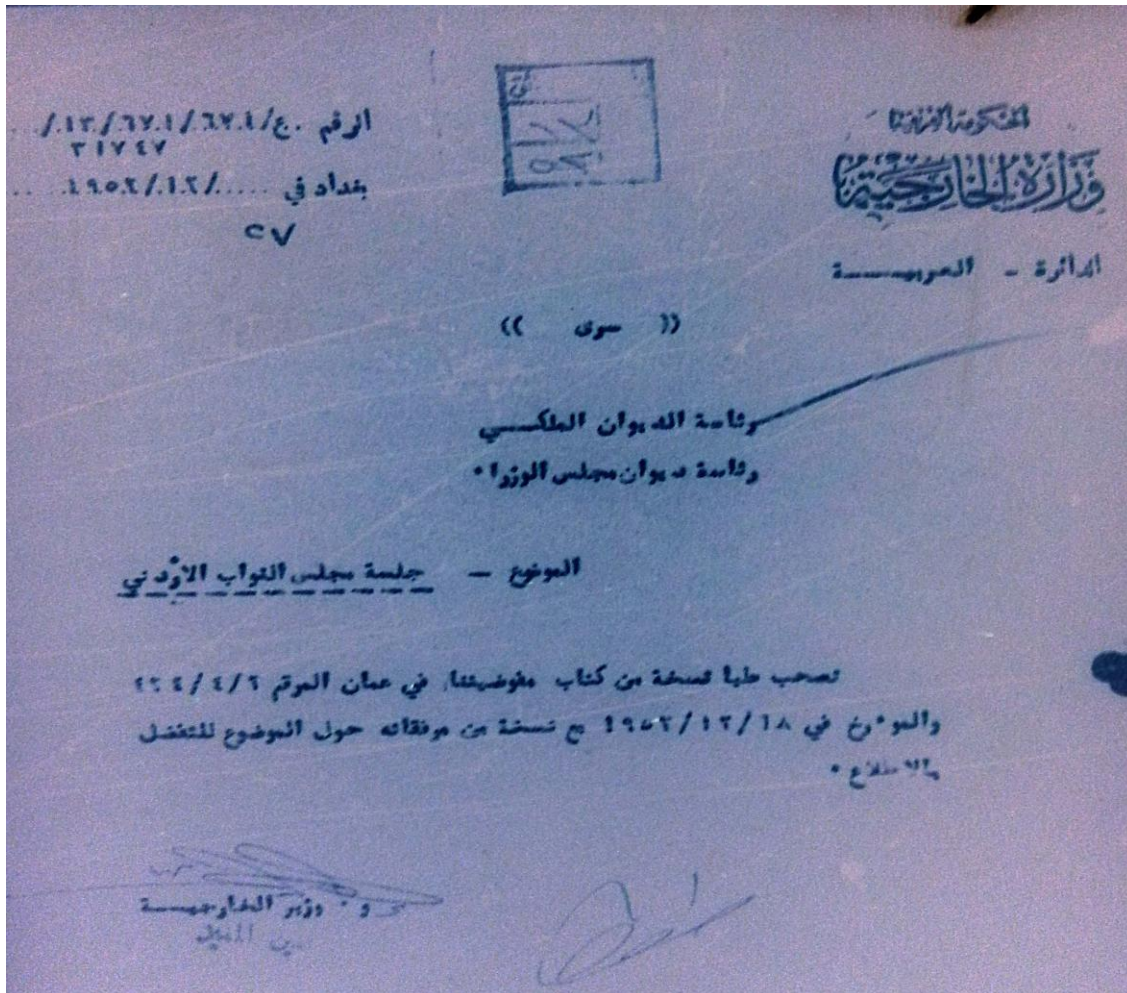 الحكومة العراقية
وزارة الخارجية
الدائرة - العربيـــــة
الرقم .ع/٦٧.١/٦٧.١/١٣/
٣١٧٤٧
بغداد في ...../١٢/١٩٥٢
٢٧
(( سرى ))
رئاسة الديوان الملكـــي
رئاسة ديوان مجلس الوزراء
الموضوع - جلسة مجلس النواب الاردني
نصحب طيا نسخة من كتاب مفوضيتنا في عمان المرقم ٢٢٤/٤/٦
والموءرخ في ١٩٥٢/١٢/١٨ مع نسخة من مرفقاته حول الموضوع للتفضل
بالاطلاع ٠
و٠ وزير الخارجيـــــة